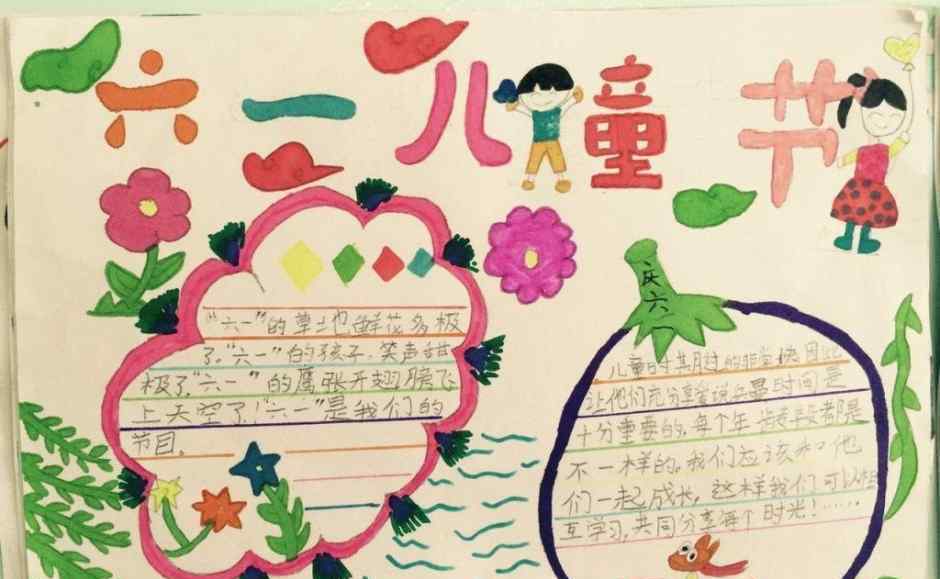 六一儿童节
庆六一
"六一"的草地鲜花多极
了,"六一"的孩子,笑声甜
极了"六一"的鹰张开翅膀飞
上天空了!"六一"是我们的
节日。
儿童时期过的非常快,因此
让他们充分享受说 时间是
十分重要的。每个年齿令段都是
不一样的。我们应该和他
们一起成长,这样我们可以相
互学习,共同分享每个时光!……